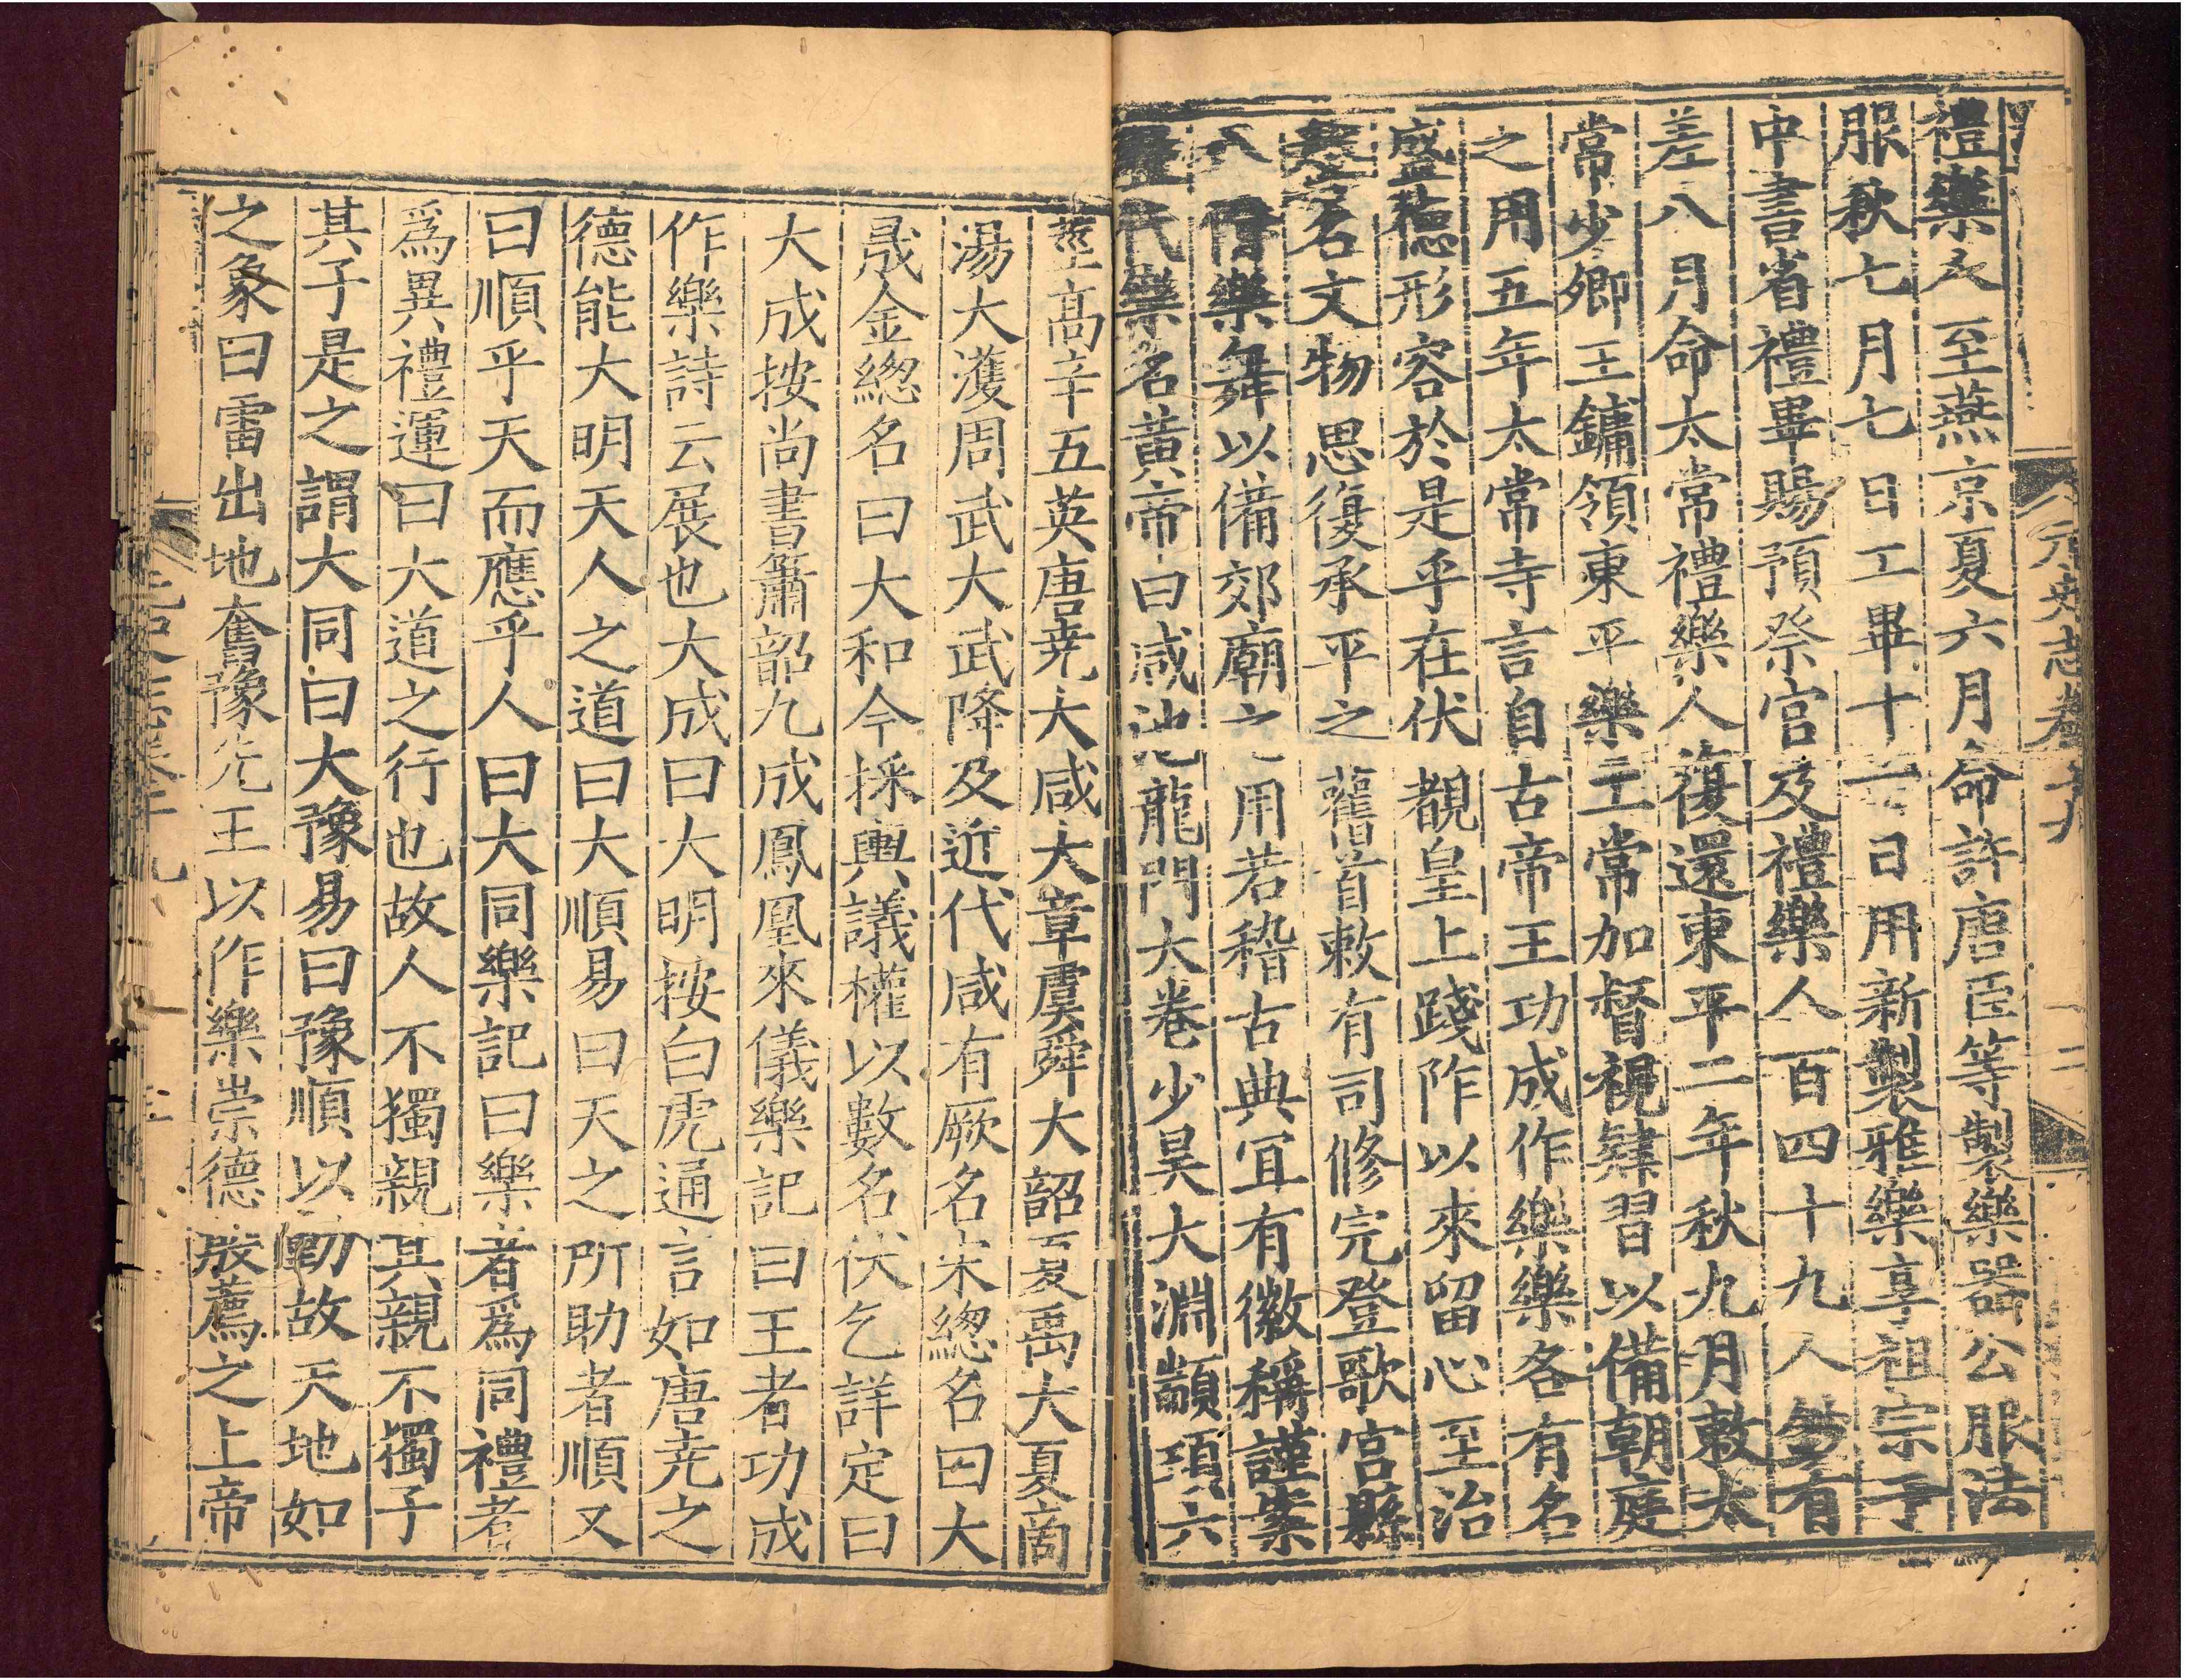 元史志卷十九
二
禮樂人至燕京夏六月命許唐臣等製樂器公服法
服秋七月七日工畢十一日用新製雅樂享祖宗于
中書省禮畢賜預祭官及禮樂人百四十九人鈔有
差八月命太常禮樂人復還東平二年秋九月敕太
常少卿王鏞領東平樂工常加督視肄習以備朝庭
之用五年太常寺言自古帝王功成作樂樂各有名
盛德形容於是乎在伏覩皇上踐阼以來留心至治
聲名文物思復承平之舊首敕有司修完登歌宮縣
八佾樂舞以備郊廟之用若稽古典宜有徽稱謹案
歷代樂名黃帝曰咸池龍門大卷少昊大淵顓頊六
莖高辛五英唐尭大咸大章虞舜大韶夏禹大夏商
湯大濩周武大武降及近代咸有厥名宋總名曰大
晟金總名曰大和今採輿議權以數名伏乞詳定曰
大成按尚書簫韶九成鳳凰來儀樂記曰王者功成
作樂詩云展也大成曰大明按白虎通言如唐尭之
德能大明天人之道曰大順易曰天之所助者順又
曰順乎天而應乎人曰大同樂記曰樂者爲同禮者
爲異禮運曰大道之行也故人不獨親其親不獨子
其子是之謂大同曰大豫易曰豫順以動故天地如
之象曰雷出地奮豫先王以作樂崇德殷薦之上帝